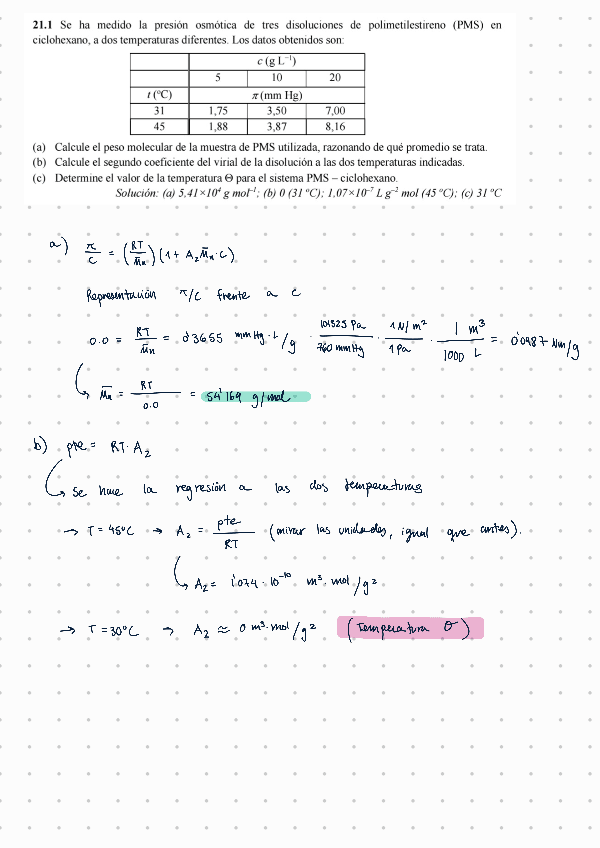 21.1 Se ha medido la presión osmótica de tres disoluciones de polimetilestireno (PMS) en
ciclohexano, a dos temperaturas diferentes. Los datos obtenidos son:
c (g L⁻¹)
5 10 20
t (ºC) π (mm Hg)
31 1,75 3,50 7,00
45 1,88 3,87 8,16
(a) Calcule el peso molecular de la muestra de PMS utilizada, razonando de qué promedio se trata.
(b) Calcule el segundo coeficiente del virial de la disolución a las dos temperaturas indicadas.
(c) Determine el valor de la temperatura Θ para el sistema PMS – ciclohexano.
Solución: (a) 5,41×10⁴ g mol⁻¹; (b) 0 (31 ºC); 1,07×10⁻⁷ L g⁻² mol (45 ºC); (c) 31 ºC
a) π/c = (RT/M̄n)(1 + A₂M̄n·c)
Representación π/c frente a c
0.0 = RT/M̄n = 0'3655 mmHg·L/g · 101325 Pa/760 mmHg · 1 N/m²/1 Pa · 1 m³/1000 L = 0'0487 Nm/g
M̄n = RT/0.0 = 54'169 g/mol
b) pte = RT·A₂
Se hace la regresión a las dos temperaturas
→ T = 45ºC → A₂ = pte/RT (mirar las unidades, igual que antes).
A₂ = 1'074·10⁻¹⁰ m³·mol/g²
→ T = 30ºC → A₂ ≈ 0 m³·mol/g² (Temperatura θ)